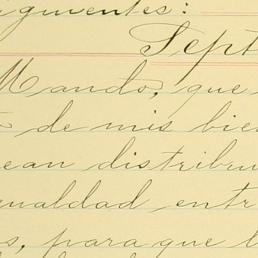 iguientes:
Sept
Mando, que
de mis bien
ean distribu
ualdad entr
s, para que l